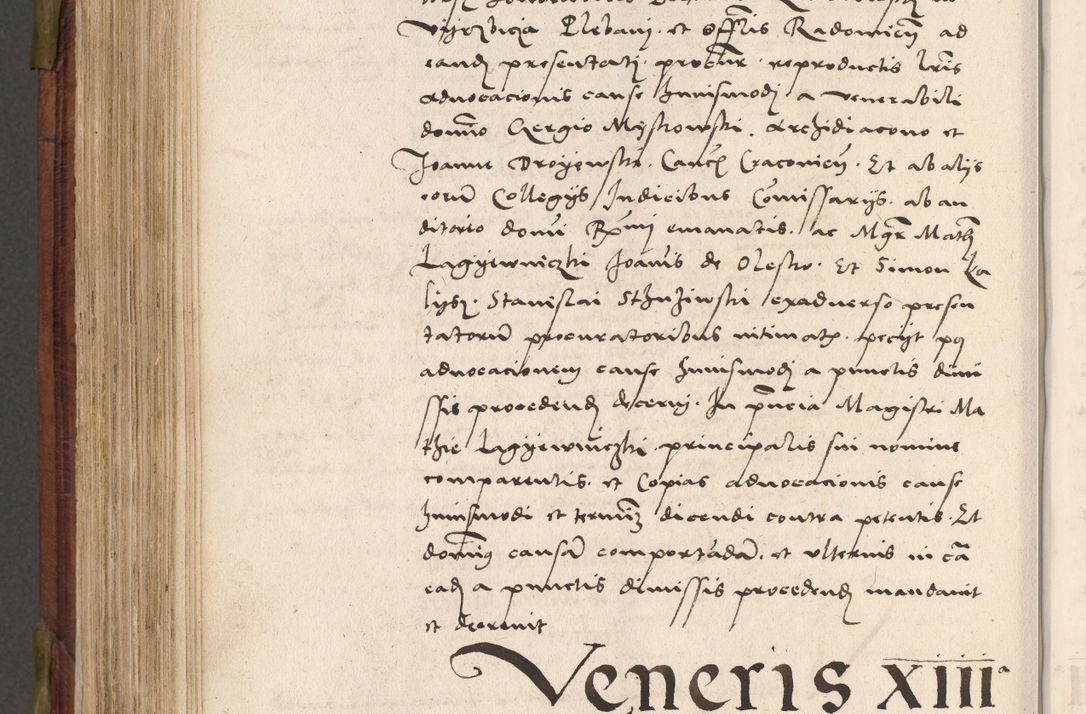 Vyerzbicza Plebani et offlis Radomien ad
eand presentati procur reproductis lris
advocacionis cause huiusmodi a venerabili
domino Georgio Myskowski archidiacono et
Joanne Droyewski Canco Cracovien Et ab alijs
eorum Collegijs Judicibus Comissarijs ab au
ditorio domini Rmi emanatis ac Mgr Math
Lagyewniczki Joanis de Olesko Et Simon Ka
lysz Stanislai exadverso presen
tatorum procuratoribus intimatis peciit
advocacionem cause huiusmodi a punctis dimi
ssis procedend decerni In pncia Magistri Ma
thie Lagyewniczki principalis sui nomine
comparentis et Copias advocacionis cause
huiusmodi et terminum dicendi contra petentis Et
dominus causam comportandam et ulterius in ca
ead a punctis dimissis procedend mandavit
et decrevit
Veneris xiiia